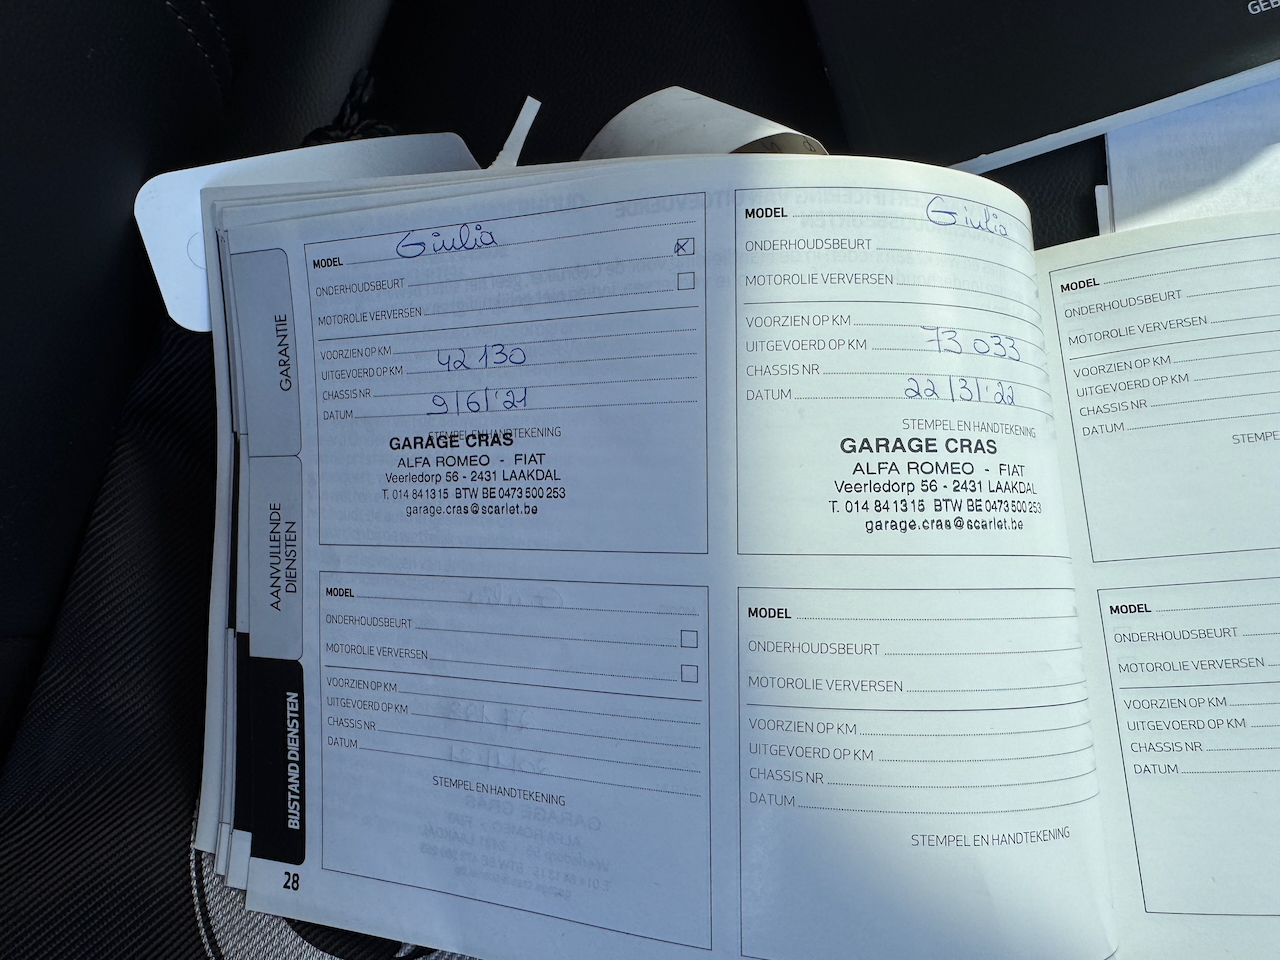 GEB
GARANTIE
AANVULLENDE
DIENSTEN
BIJSTAND DIENSTEN
28
MODEL Giulia
ONDERHOUDSBEURT
MOTOROLIE VERVERSEN
VOORZIEN OP KM
UITGEVOERD OP KM 42 130
CHASSIS NR
DATUM 9/6/'21
STEMPEL EN HANDTEKENING
GARAGE CRAS
ALFA ROMEO - FIAT
Veerledorp 56 - 2431 LAAKDAL
T. 014 841315 BTW BE 0473 500 253
garage.cras@scarlet.be
MODEL
ONDERHOUDSBEURT
MOTOROLIE VERVERSEN
VOORZIEN OP KM
UITGEVOERD OP KM
CHASSIS NR
DATUM
STEMPEL EN HANDTEKENING
MODEL Giulia
ONDERHOUDSBEURT
MOTOROLIE VERVERSEN
VOORZIEN OP KM
UITGEVOERD OP KM 73 033
CHASSIS NR
DATUM 22/3/'22
STEMPEL EN HANDTEKENING
GARAGE CRAS
ALFA ROMEO - FIAT
Veerledorp 56 - 2431 LAAKDAL
T. 014 841315 BTW BE 0473 500 253
garage.cras@scarlet.be
MODEL
ONDERHOUDSBEURT
MOTOROLIE VERVERSEN
VOORZIEN OP KM
UITGEVOERD OP KM
CHASSIS NR
DATUM
STEMPEL EN HANDTEKENING
MODEL
ONDERHOUDSBEURT
MOTOROLIE VERVERSEN
VOORZIEN OP KM
UITGEVOERD OP KM
CHASSIS NR
DATUM
STEMPE
MODEL
ONDERHOUDSBEURT
MOTOROLIE VERVERSEN
VOORZIEN OP KM
UITGEVOERD OP KM
CHASSIS NR
DATUM